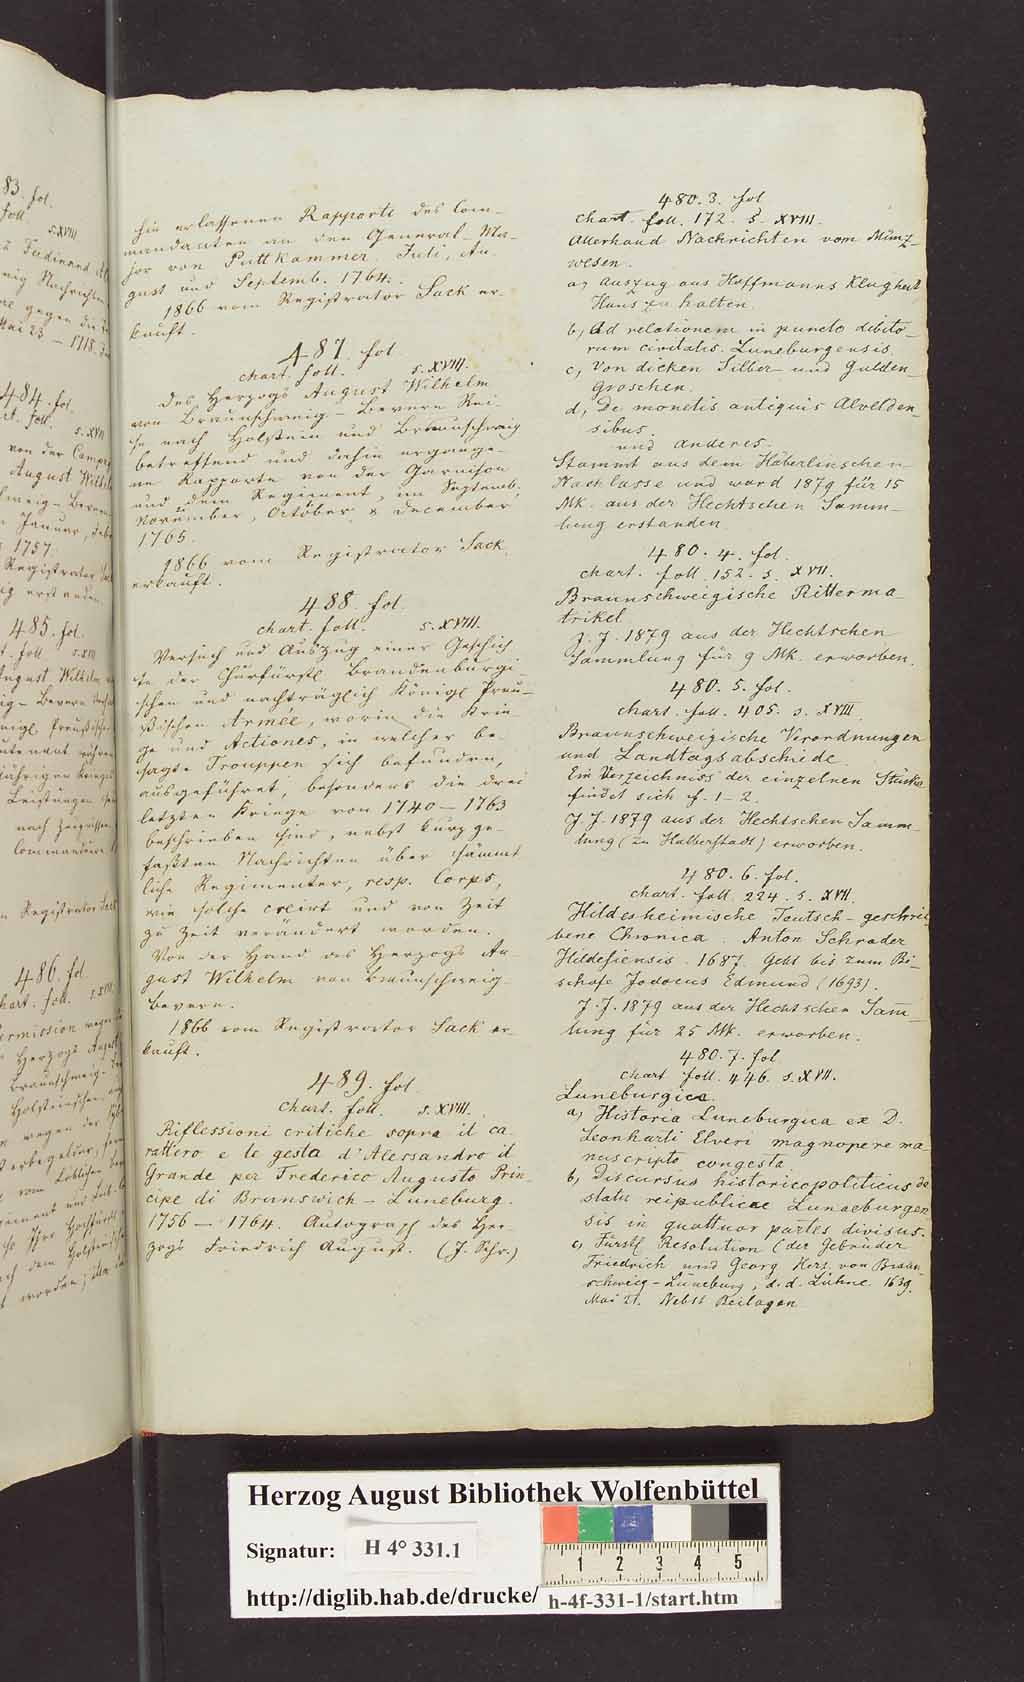 83. fol.
foll
s. XVII
z Ferdinand Al
nig Nachrichten
gegen die
Mai 23 – 1718.
484. fol.
rt. foll. s. XVII
von der Campag
August Wilhelm
hweig – Bevern
Januar, Febr
1757.
Registrator Sack
ig erstanden
485. fol.
t. foll s. XVII
August Wilhelm
ig – Bevern
nigl. Preußische
utenant
jährigen Krieges
Leistungen
nach Zeugnissen
Commandeur
n Registrator Sack
486. fol
hart. foll. s. XVII
ermission wegen
Herzogs August
Braunschweig –
Holsteinischen
wegen der
vom Löblichen
iment und
so Ihro Hochfürstl
ch dem Holsteinisch
worden;
hin erlassenen Rapporte des Com-
mandanten an den General-Ma-
jor von Puttkammer. Juli, Au-
gust und Septemb. 1764.
1866 vom Registrator Sack er-
kauft.
487. fol.
chart. foll. s. XVIII.
Des Herzogs August Wilhelm
von Braunschweig – Bevern Rei-
se nach Holstein und Braunschweig
betreffend und dahin ergange-
ne Rapporte von der Garnison
und dem Regiment, im Septemb.
November, October & December
1765.
1866 vom Registrator Sack
erkauft.
488. fol.
chart. foll. s. XVIII.
Versuch und Auszug einer Geschich
te der Churfürstl Brandenburgi-
schen und nachträglich Königl Preu-
ßischen Armée, worin die Krie
ge und Actiones, in welcher be-
sagte Trouppen sich befunden,
ausgeführet, besonders die drei
letzten Kriege von 1740 – 1763
beschrieben sind, nebst kurz ge-
faßten Nachrichten über sämmt
liche Regimenter, resp. Corps,
wie solche creirt und von Zeit
zu Zeit verändert worden.
Von der Hand des Herzogs Au-
gust Wilhelm von Braunschweig-
Bevern.
1866 vom Registrator Sack er-
kauft.
489. fol.
chart. foll. s. XVIII.
Riflessioni critiche sopra il ca-
rattero e le gesta d'Alessandro il
Grande per Frederico Augusto Prin-
cipe di Brunswich – Luneburg.
1756 – 1764. Autograph des Her-
zogs Friedrich August. (J. Schr.)
480. 3. fol
chart. foll. 172. s. XVIII.
Allerhand Nachrichten vom Münz-
wesen.
a, Auszug aus Hoffmanns Klugheit
Haus zu halten.
b, Ad relationem in puncto debito-
rum civitatis Luneburgensis.
c, Von dicken Silber- und Gulden-
groschen.
d, De monetis antiquis Alvelden-
sibus.
und anderes.
Stammt aus dem Häberlinschen
Nachlasse und ward 1879 für 15
Mk. aus der Hechtschen Samm-
lung erstanden.
480. 4. fol.
chart. foll. 152. s. XVII.
Braunschweigische Ritterma-
trikel
J. J. 1879 aus der Hechtschen
Sammlung für 9 Mk. erworben.
480. 5. fol.
chart. foll. 405. s. XVIII.
Braunschweigische Verordnungen
und Landtagsabschiede.
Ein Verzeichniss der einzelnen Stücke
findet sich f. 1–2.
J. J. 1879 aus der Hechtschen Samm-
lung (zu Halberstadt) erworben.
480. 6. fol.
chart. foll. 224. s. XVII.
Hildesheimische Teutsch – geschrie-
bene Chronica. Anton Schrader
Hildesiensis. 1687. Geht bis zum Bi-
schofe Jodocus Edmund (1693).
J. J. 1879 aus der Hechtschen Sam̅-
lung für 25 Mk. erworben.
480. 7. fol
chart foll. 446. s. XVII.
Luneburgica.
a, Historia Luneburgica ex D.
Leonharti Elveri magnopere ma-
nuscripto congesta
b, Discursus historicopoliticus de
statu reipublicae Lunaeburgen-
sis in quattuor partes divisus.
c, Fürstl Resolution (der Gebrüder
Friedrich und Georg Herz. von Braun
schweig – Lüneburg, d. d. Lühne 1639.
Mai 21. Nebst Beilagen
Herzog August Bibliothek Wolfenbüttel
Signatur: H 4° 331.1
1 2 3 4 5
http://diglib.hab.de/drucke/ h-4f-331-1/start.htm